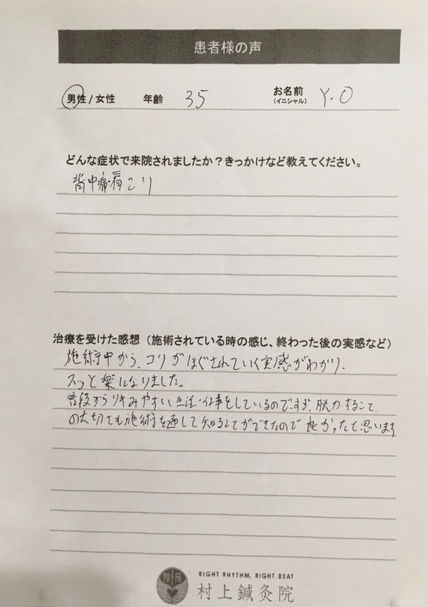 患者様の声
男性 / 女性 年齢 35 お名前 Y.O
(イニシャル)
どんな症状で来院されましたか？きっかけなど教えてください。
背中痛・肩こり
治療を受けた感想（施術されている時の感じ、終わった後の実感など）
施術中から、コリがほぐされていく実感がわかり、
スッと楽になりました。
普段からリキみやすい生活・仕事をしているのですが、脱力すること
の大切さも施術を通して知ることができたので良かったと思います
RIGHT RHYTHM, RIGHT BEAT
村上鍼灸院